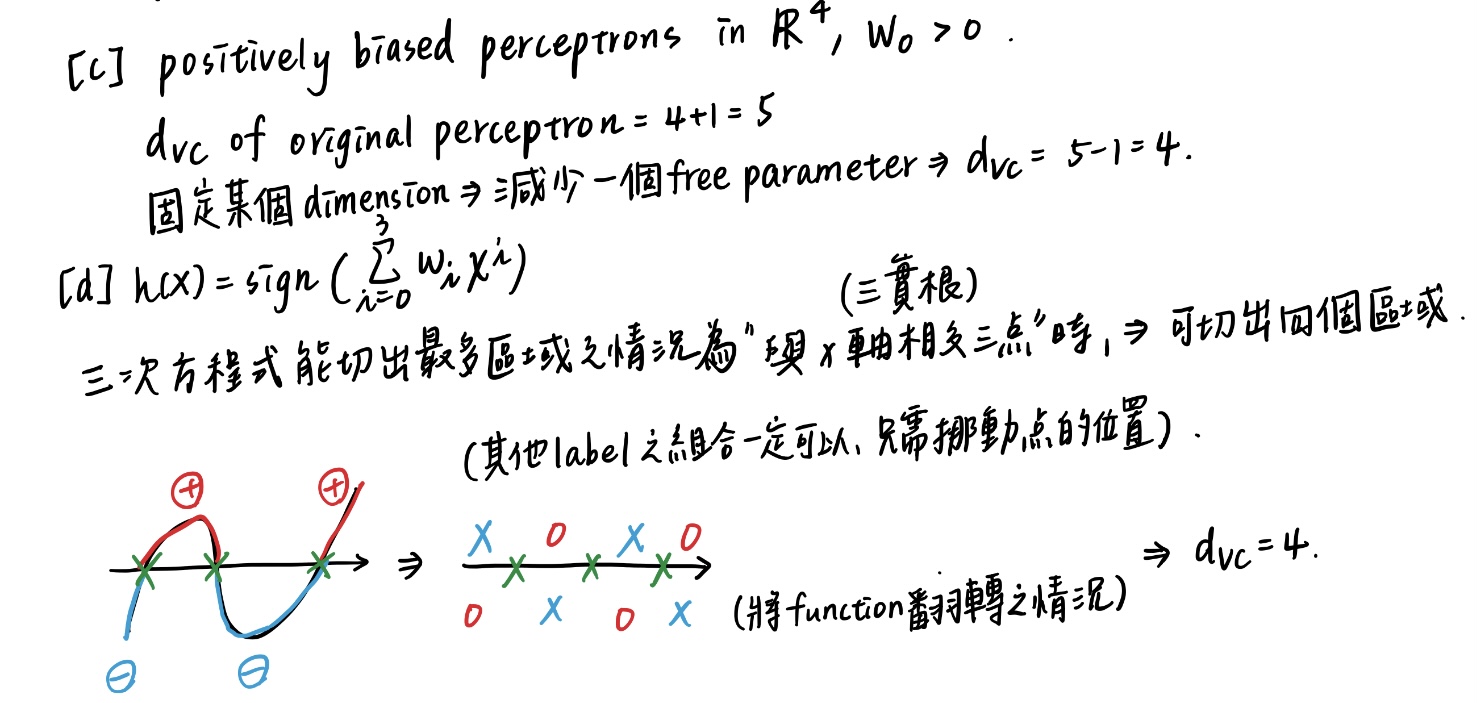 [c] positively biased perceptrons in ℝ⁴, w₀ > 0 .
dvc of original perceptron = 4+1 = 5
固定某個 dimension ⇒ 減少一個 free parameter ⇒ dvc = 5-1 = 4.
[d] h(x) = sign ( ∑_{i=0}^{3} wᵢ xⁱ )
(三實根)
三次方程式能切出最多區域之情況為"與 x 軸相交三点"時, ⇒ 可切出四個區域.
(其他 label 之組合一定可以, 只需挪動点的位置) .
⊕ ⊕
⇒ X O X O
⇒ dvc = 4.
O X O X (將 function 翻轉之情況)
⊖ ⊖